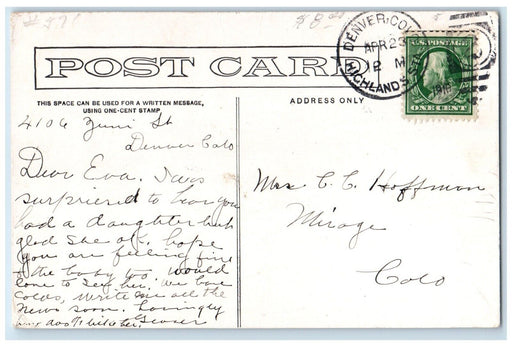 $8
POST CARD
DENVER, COLO.
APR 23
12 M
HIGHLANDS
U.S. POSTAGE
ONE CENT
THIS SPACE CAN BE USED FOR A WRITTEN MESSAGE,
USING ONE-CENT STAMP
ADDRESS ONLY
4106 Zuni St
Denver Colo
Dear Eva. I was
surprised to hear you
had a daughter but
glad she ok. hope
you are feeling fine
& the baby too. would
love to see her. We have
colds, write me all the
news soon. Lovingly
Mrs C. C. Hoffman
Mirage
Colo